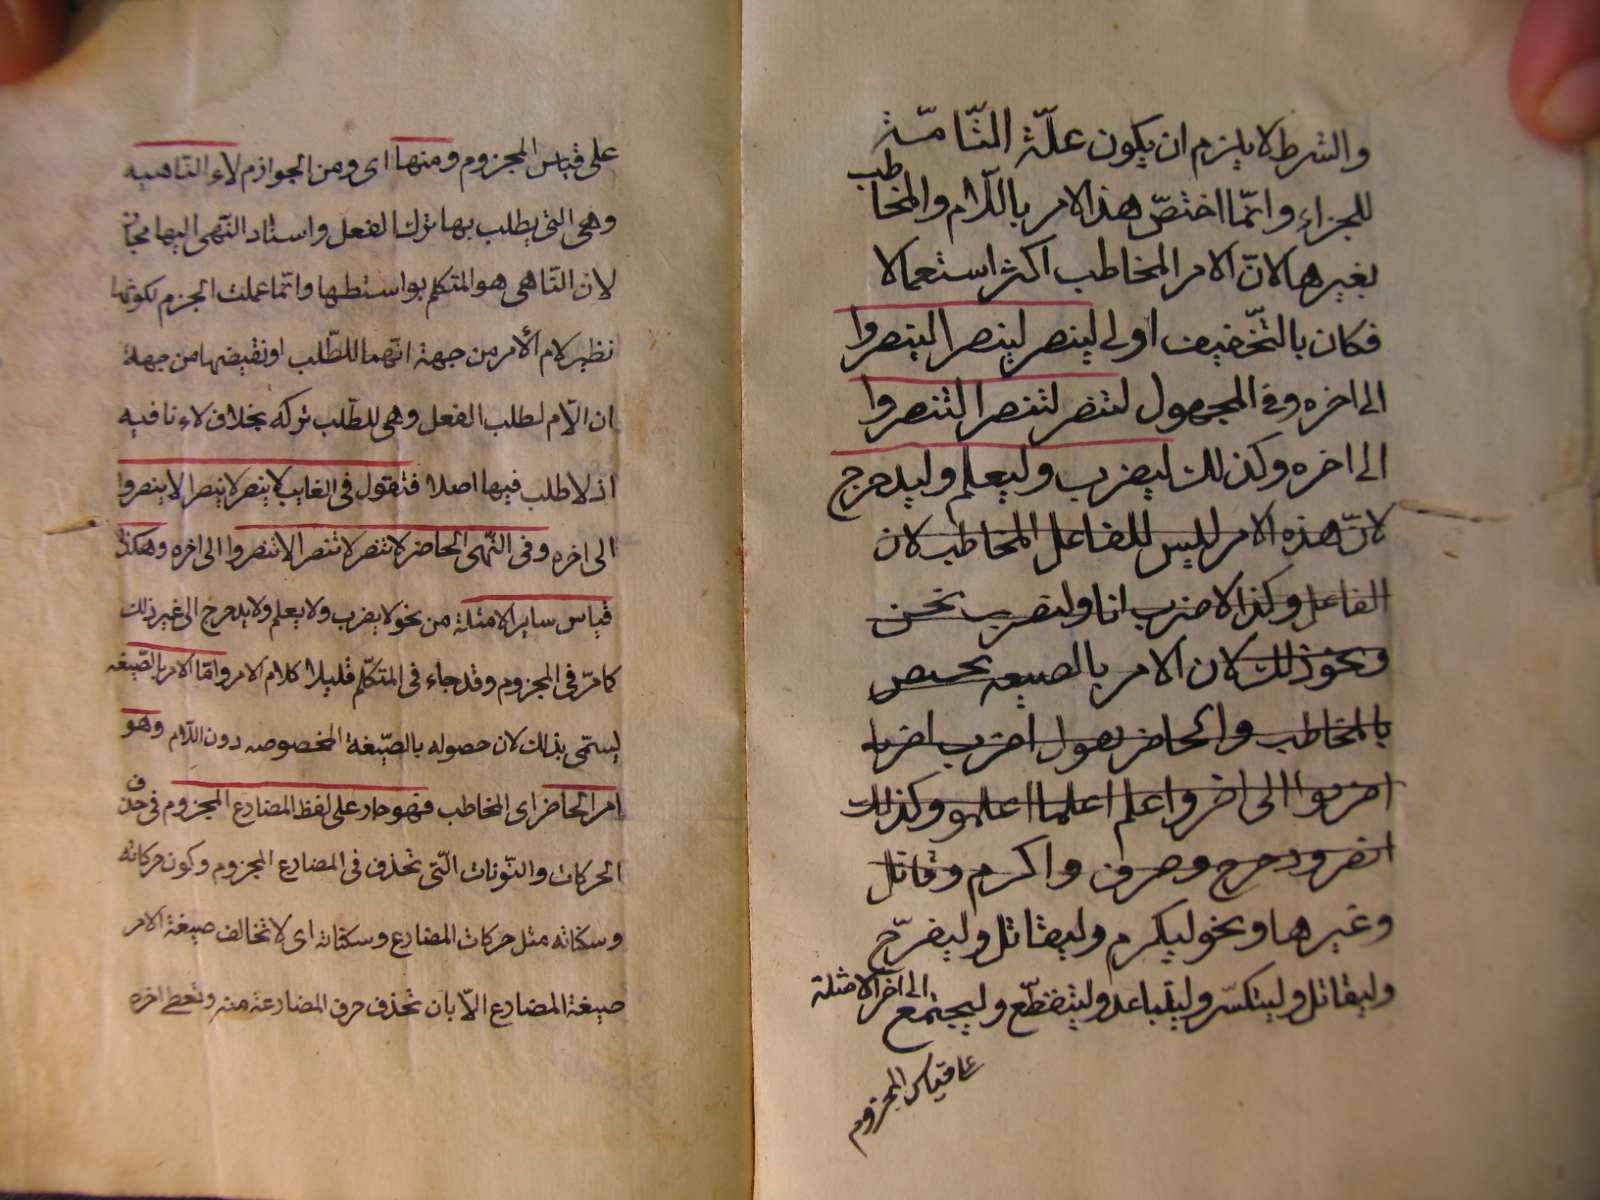 والشرط لا يلزم ان يكون علّة التّامّة
للجزاء وانّما اختصّ هذا الامر باللّام والمخاطب
بغيرها لانّ الامر المخاطب اكثر استعمالا
فكان بالتّخفيف اولى لينصر لينصرا لينصروا
الى اخره وفى المجهول لتنصر لتنصرا لتنصروا
الى اخره وكذلك ليضرب وليعلم وليدحرج
لانّ هذه الامر ليس للفاعل المخاطب لان
الفاعل وكذا لاضرب انا ولنضرب نحن
ونحو ذلك لان الامر بالصيغه يختص
بالمخاطب والحاضر اضرب اضربا
اضربوا الى اعلم اعلما اعلموا وكذلك
انصر ودحرج واكرم وقاتل
وغيرها ونحو ليكرم وليقاتل وليفرّح
وليقاتل وليتكسّر وليتباعد وليتقطّع وليجتمع الى آخر الامثلة
قياس المجزوم
على قياس المجزوم ومنها اى ومن الجوازم لاء النّاهيه
وهى التى يطلب بها ترك الفعل واسناد النّهى اليها مجاز
لان النّاهى هو المتكلم بواسطتها وانّما عملت الجزم لكونها
نظير لام الأمر من جهة انّهما للطّلب او نقيضها من جهة
ان اللّام لطلب الفعل وهى للطّلب تركه بخلاف لاء نافيه
اذ لا طلب فيها اصلا فتقول فى الغايب لا ينصر لا ينصرا لا ينصروا
الى اخره وفى النّهى الحاضر لا تنصر لا تنصرا لا تنصروا الى اخره وهكذا
قياس ساير الامثلة من نحو لا يضرب ولا يعلم ولا يدحرج الى غير ذلك
كما مرّ فى المجزوم وقد جاء فى المتكلّم قليلا كلام الامر وامّا الامر بالصّيغه
يسمّى بذلك لان حصوله بالصّيغة المخصوصه دون اللّام وهو
امر الحاضر اى المخاطب فهو جار على لفظ المضارع المجزوم فى حذف
الحركات والنّونات الّتى تحذف فى المضارع المجزوم وكون حركاته
وسكناته مثل حركات المضارع وسكناته اى لا تخالف صيغة الامر
صيغة المضارع الّا بان تحذف حرف المضارعة منه وتعطى اخره